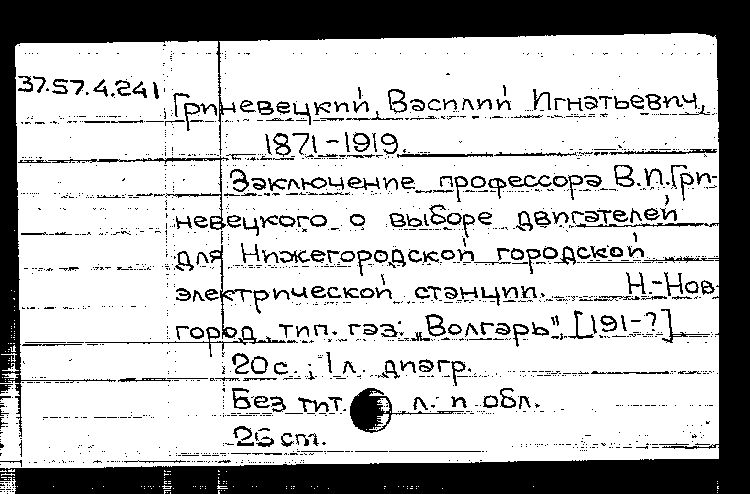 37.57.4.241
Гриневецкий, Василий Игнатьевич,
1871-1919.
Заключение профессора В.И.Гри-
невецкого о выборе двигателей
для Нижегородской городской
электрической станции. Н.-Нов-
город, тип. газ: „Волгарь", [191-?]
20 с.; 1 л. диагр.
Без тит. л. и обл.
26 cm.